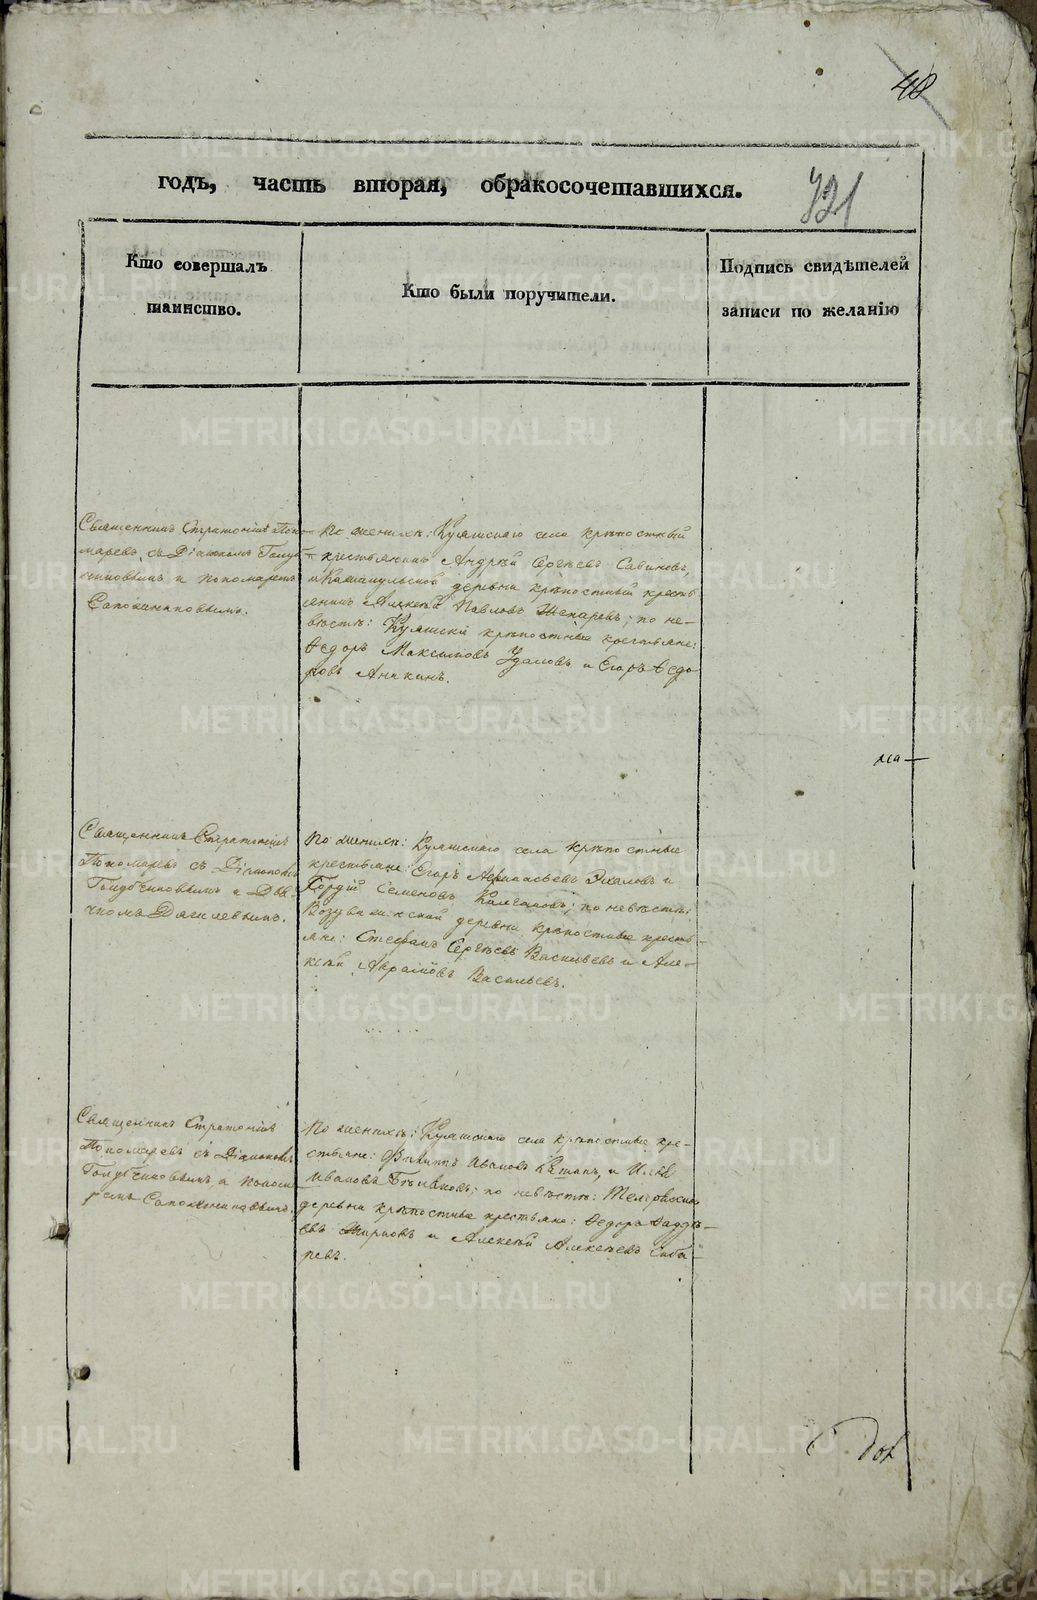 48
годъ, часть вторая, обракосочетавшихся.
721
Кто совершалъ
таинство.
Кто были поручители.
Подпись свидѣтелей
записи по желанію
Священникъ Стратоникъ Поно-
маревъ съ Діакономъ Голуб-
чиковымъ и пономаремъ
Сапожниковымъ.
По женихѣ: Куяшскаго села крѣпостный
крестьянинъ Андрей Сергѣевъ Савиновъ,
и деревни крѣпостный кресть-
янинъ Алексѣй Павловъ по не-
вѣстѣ: Куяшскіе крѣпостные крестьяне:
Ѳедоръ Максимовъ Удаловъ и Егоръ Ѳедо
ровъ Аникинъ.
на
Священникъ Стратоникъ
Пономаревъ съ Діакономъ
Голубчиковымъ и Дья-
чкомъ Дягилевымъ.
По женихѣ: Куяшскаго села крѣпостные
крестьяне: Егоръ Афанасьевъ и
Гордѣй Семеновъ по невѣстѣ:
деревни крѣпостные кресть-
яне: Стефанъ Сергѣевъ Васильевъ и Але-
ксѣй Васильевъ.
Священникъ Стратоникъ
Пономаревъ съ Діакономъ
Голубчиковымъ и понома
ремъ Сапожниковымъ.
По женихѣ: Куяшскаго села крѣпостные кре-
стьяне: Филиппъ Ивановъ и Илья
Ивановъ по невѣстѣ:
деревни крѣпостные крестьяне: Ѳедоръ Ѳаддѣ-
евъ и Алексѣй Алексѣевъ